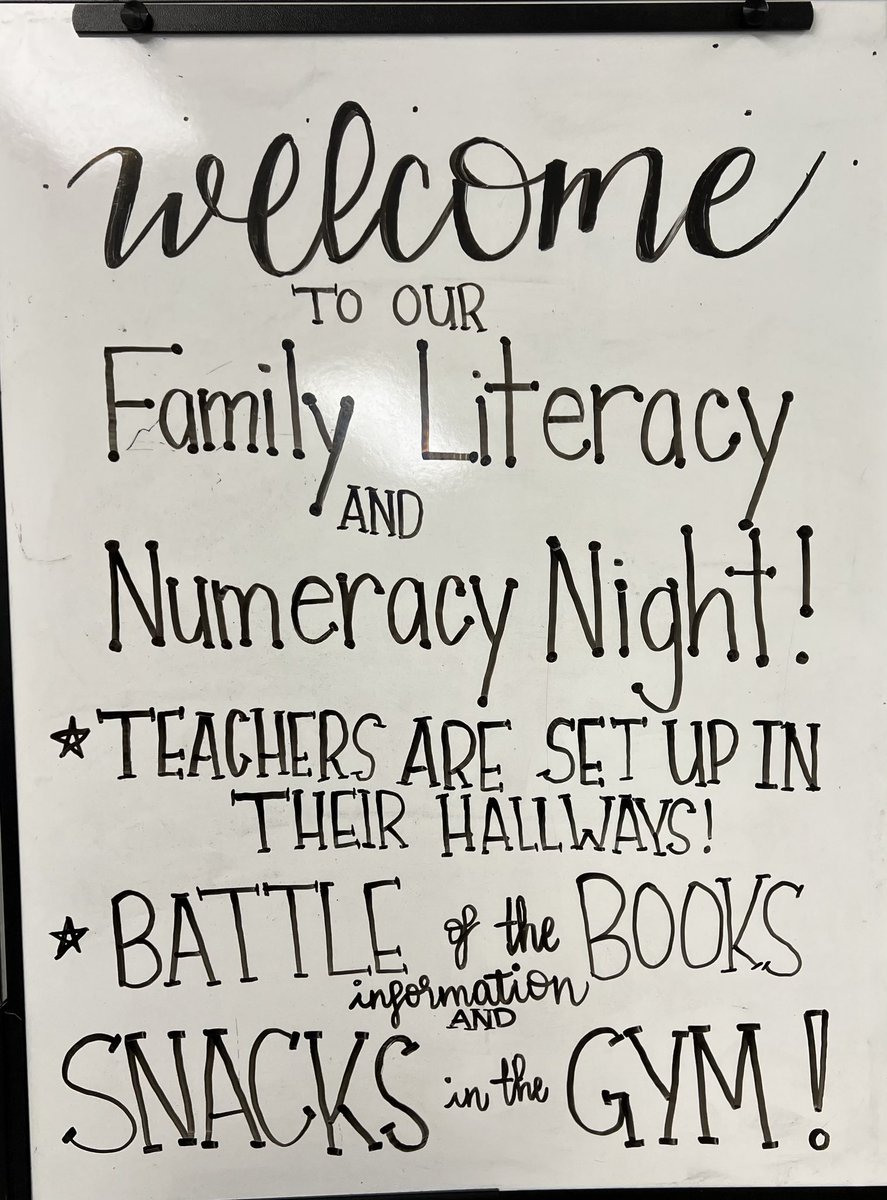 welcome
TO OUR
Family Literacy
AND
Numeracy Night!
☆ TEACHERS ARE SET UP IN
THEIR HALLWAYS!
☆ BATTLE of the BOOKS
information
AND
SNACKS in the GYM!